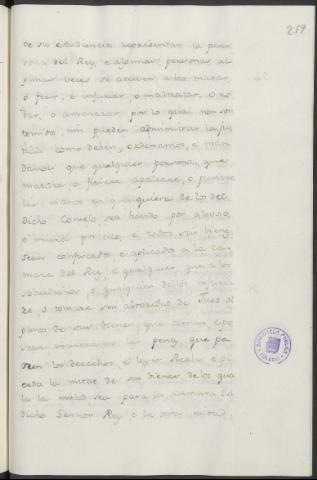 259
de su Audiencia representan la per-
sona del Rey, e algunas personas al-
gunas veces se atreven a los matar,
o ferir, e injuriar, o maltratar. O ro-
bar, o amenazar, por lo qual non son
temidos, nin pueden administrar la jus-
ticia como deben, ordenamos, e man-
damos que qualquier persona, que
matare, o firiere, o pusiere
las manos en qualquiera de los del
dicho Consejo, sea havido por alevoso,
e muera por ello, e todos sus bienes
sean confiscados, e aplicados a la Ca-
mara del Rey, e qualquier que a los
sobredichos, o qualquier dellos
de, o tomare sin abtoridad de Jues al-
gunos de sus bienes, que tienen e po-
seen la pena, que po-
nen los derechos, e leyes Reales e pi-
erda la mitad de sus bienes, de los qua-
les la mitad sea para la camara del
dicho Sennor Rey, e la otra mitad
BIBLIOTECA PUBLICA
TOLEDO